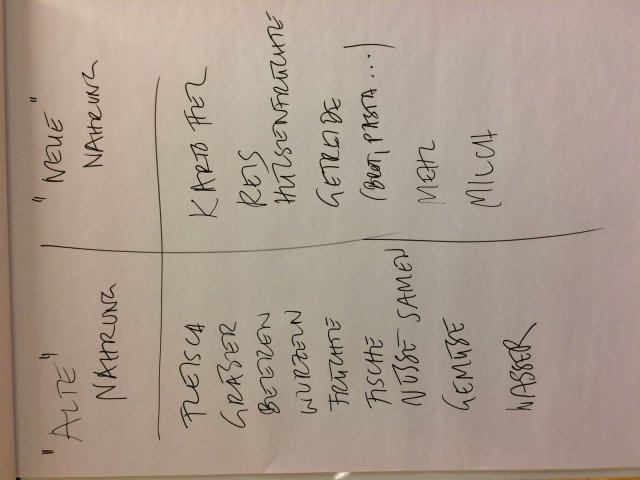 "ALTE"
NAHRUNG
FLEISCH
GRÄSER
BEEREN
WURZELN
FRÜCHTE
FISCHE
NÜSSE SAMEN
GEMÜSE
WASSER
"NEUE"
NAHRUNG
KARTOFFEL
REIS
HÜLSENFRÜCHTE
GETREIDE
(BROT, PASTA...)
MEHL
MILCH